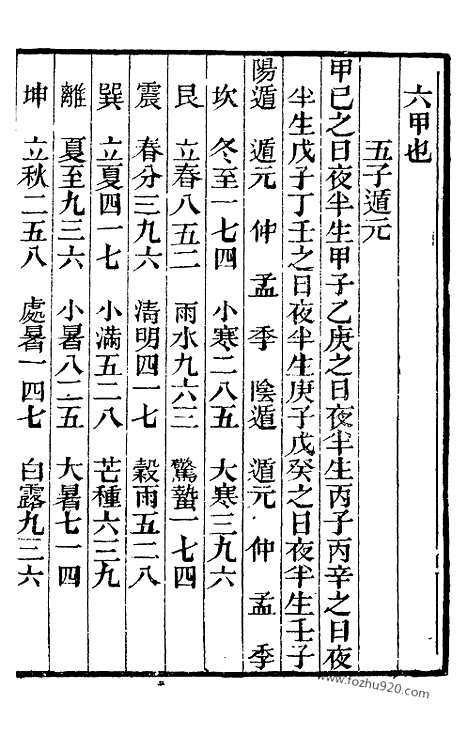 六甲也
五子遁元
甲己之日夜半生甲子乙庚之日夜半生丙子丙辛之日夜
半生戊子丁壬之日夜半生庚子戊癸之日夜半生壬子
陽遁 遁元 仲 孟 季 陰遁 遁元 仲 孟 季
坎 冬至一七四 小寒二八五 大寒三九六
艮 立春八五二 雨水九六三 驚蟄一七四
震 春分三九六 淸明四一七 穀雨五二八
巽 立夏四一七 小滿五二八 芒種六三九
離 夏至九三六 小暑八二五 大暑七一四
坤 立秋二五八 處暑一四七 白露九三六
www.fozhu920.com